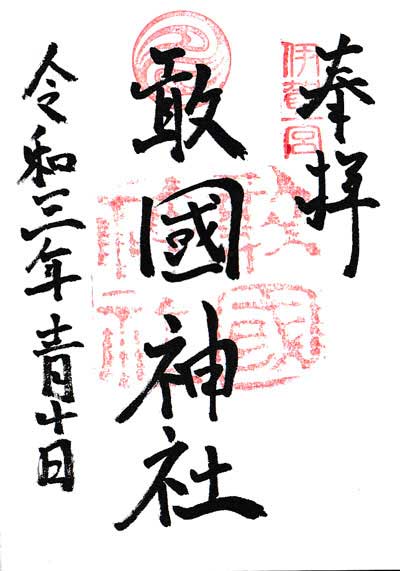 奉拝
伊賀一宮
敢國神社
敢國神社
令和三年十一月十日